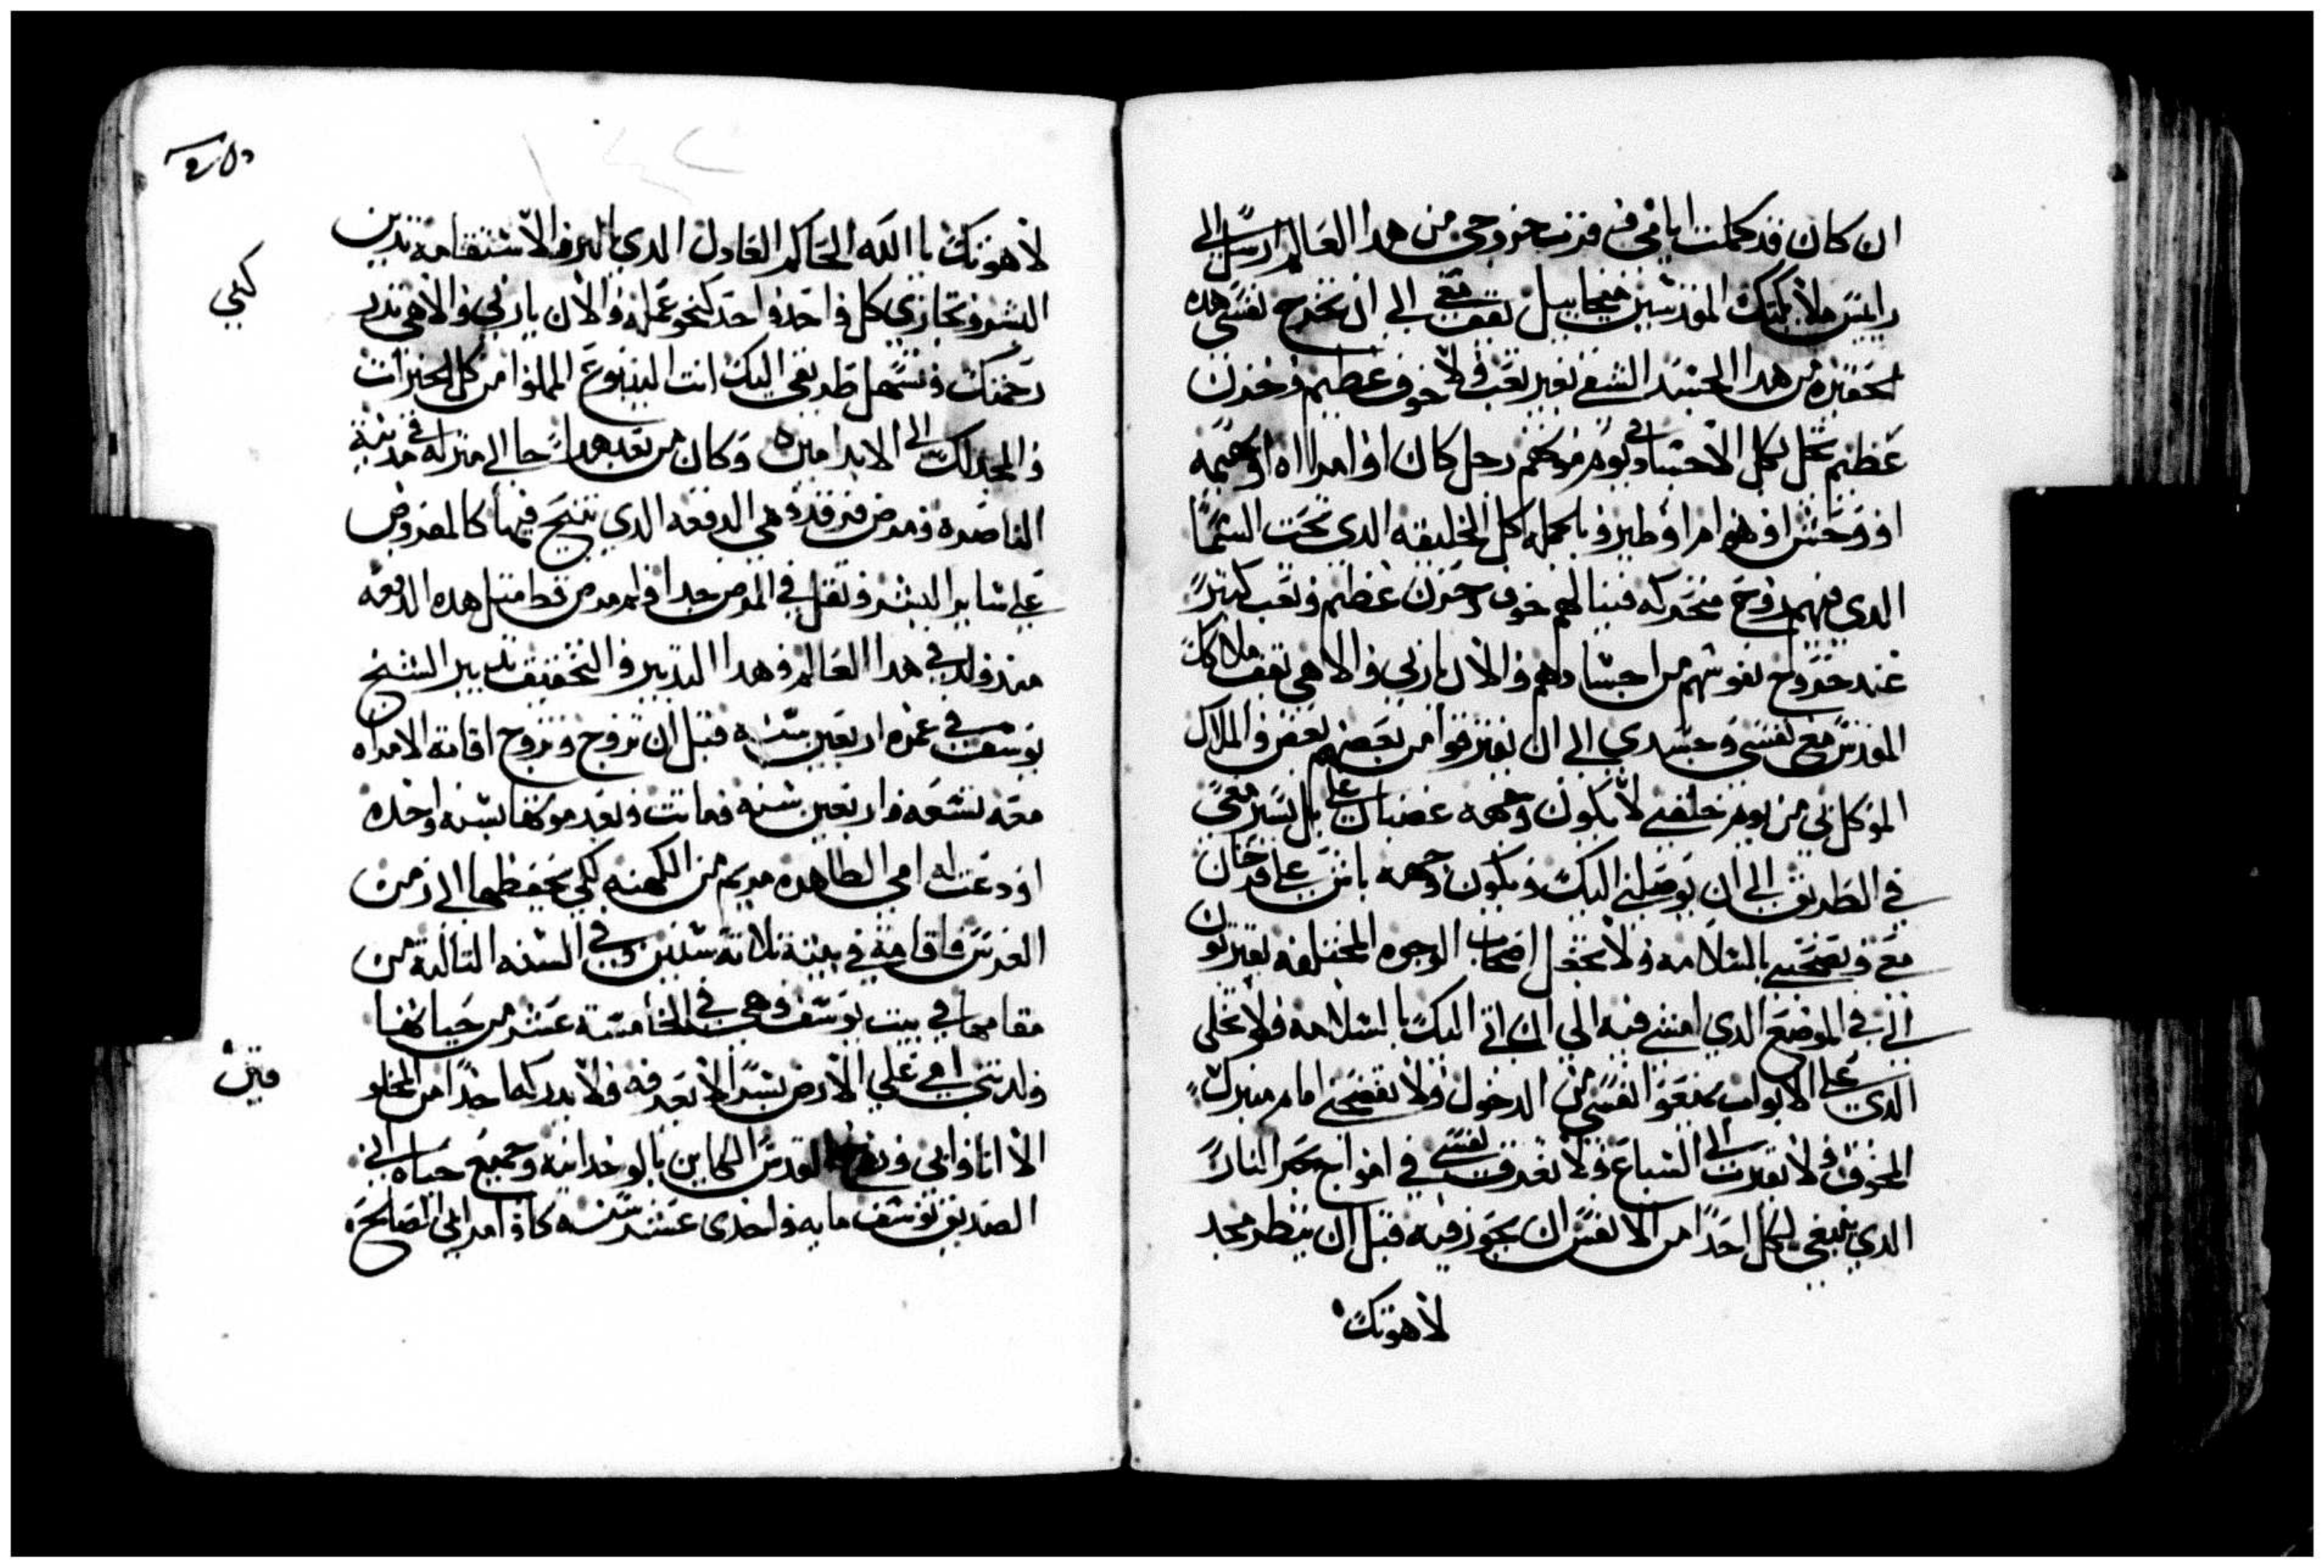 ان كان قد كملت ايامي وقربت خروجي من هدا العالم ارسل الي
راييس ملايكتك المقدسين ميخاييل يقف معي الي ان تخرج نفسي هده
الحقيره من هدا الجسد الشقي بغير تعب ولا خوف عظيم وحزن
عظيم تحل بكل الاجساد في يوم موتهم رجل كان او امراه او بهيمه
او وحش او هوام او طير وبالجمله كل الخليقه الدي تحت السما
الدي فيهم روح متحركه فينالهم خوف وحزن عظيم وتعب كتير
عند خروج نفوسهم من اجسادهم والان يا ربي والاهي يقف ملاكك
المقدس مع نفسي وجسدي الي ان يفترقوا من بعضهم بعض والملاك
الموكل بي من يوم خلقتني لا يكون وجهه غضبان علي بل يسير معي
في الطريق الي ان يوصلني اليك ويكون وجهه باش علي فرحان
معي ويصحبني بالسلامه ولا تجعل اصحاب الوجوه المختلفه يقتربون
الي في الموضع الدي امشي فيه الي ان اتي اليك بالسلامه ولا تخلي
الدي علي الابواب يمنعوا نفسي من الدخول ولا تفضحني امام منبرك
المخوف ولا تقرب الي السباع ولا تغرق نفسي في امواج بحر النار
الدي ينبغي لكل احدا من الانفس ان يجوز فيه قبل ان ينظر مجد
لاهوتك
لاهوتك يا الله الحاكم العادل الدي بالبر والاستقامه تدين
البشر وتجازي كل واحد واحد كنحو عمله والان يا ربي والاهي تدر
رحمتك وتسهل طريقي اليك انت الينبوع المملوا من كل الخيرات
والمجد لك الي الابد امين وكان من بعد هدا جا الي منزله في مدينة
الناصره ومرض في رقده هي الدفعه الدي يتنيح فيها كالمفروض
علي ساير البشر وتقل في المرض جدا ولم يمرض قط متل هده الدفعه
مند ولد في هدا العالم وهدا التدبير والتحقيق تدبير الشيخ
يوسف في عمره اربعين سنه قبل ان تزوج وتزوج اقامة الامراه
معه تسعه واربعين سنه فماتت وبعد موتها بسنه واحده
اودعت له امي الطاهره مريم من الكهنه لكي يحفظها الي زمن
العرس فاقامة في بيته تلاتة سنين وفي السنه التالته من
مقامها في بيت يوسف وهي في الخامسة عشر من حياتها
ولدتني امي علي الارض بسر لا تعرفه ولا يدركها احدا من المخلو
الا انا وابي وروح القدس الكاين بالوحدانيه وجميع حياة ابي
الصديق يوسف مايه واحدى عشر سنه كاو امر ابي الصالح
كهي